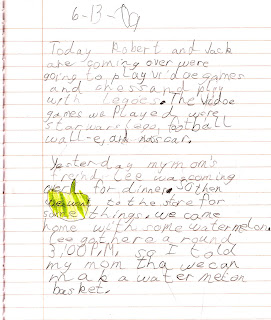 6-13-09
Today Robert and Jack
are comming over were
going to play vidoegames
and chess and play
with Legoes. The vidoe
games we played were
starwars lego, football
wall-e, and nascar.
Yesterday my mom's
freind Lee was coming
over for dinner. So then
we went to the store for
some things. we came
home with some watermelon.
Lee got here a round
3:00 P.M. so I told
my mom tha we can
make a watermelon
basket.